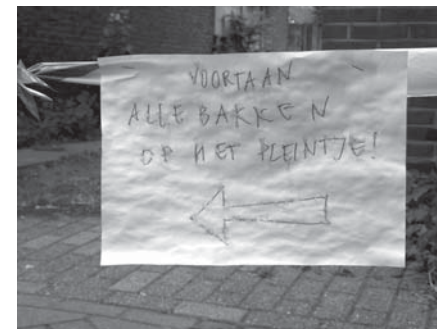 VOORTAAN
ALLE BAKKEN
OP HET PLEINTJE!